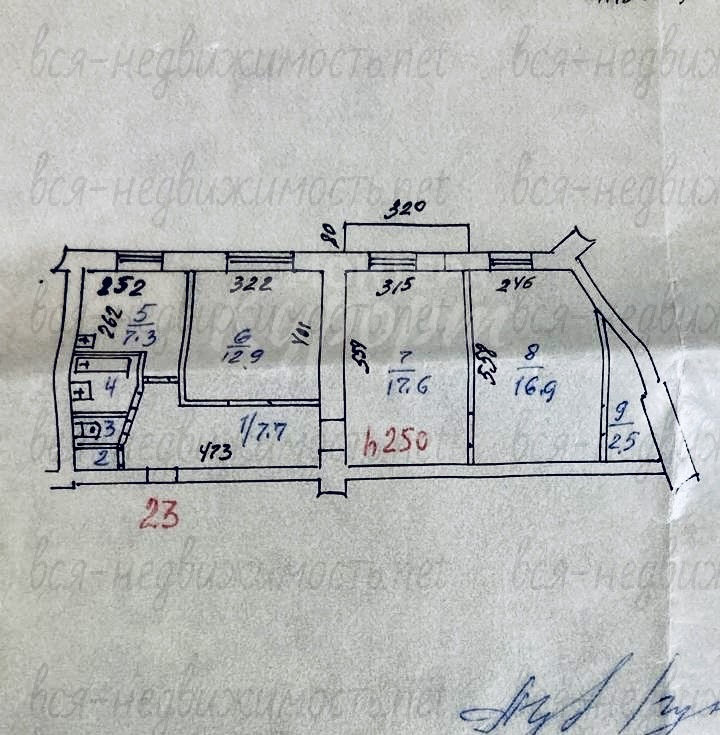 вся-недвижимость.net
вся-недвиж
вся-недвижимость.net
вся-недвиж
320
80
252
322
315
246
262
5
7.3
6
12.9
401
559
7
17.6
558
8
16.9
4
3
2
1/7.7
473
h250
9
2.5
23
вся-недвижимость.net
вся-недвиж
вся-недвижимость.net